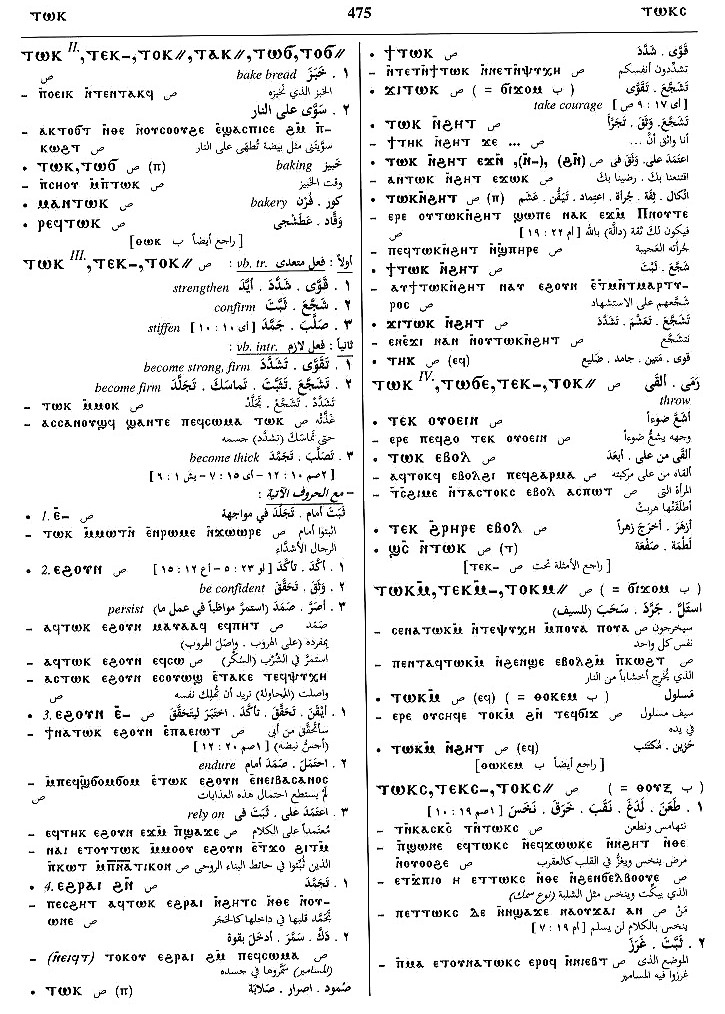 ⲧⲱⲕ
475
ⲧⲱⲕⲥ
ⲧⲱⲕ II., ⲧⲉⲕ-, ⲧⲟⲕ//, ⲧⲁⲕ//, ⲧⲱϭ, ⲧⲟϭ// ص
١ . خَبَزَ bake bread
– ⲡⲟⲉⲓⲕ ⲛ̄ⲧⲉⲛⲧⲁⲕϥ ص الخبز الذي تخبزه
٢ . سَوَّى على النار
– ⲁⲕⲧⲟϭⲧ ⲛ̄ⲑⲉ ⲛ̄ⲟⲩⲥⲟⲟⲩϩⲉ ⲉ̄ϣⲁⲥⲡⲓⲥⲉ ϩⲙ̄ ⲡ-
ⲕⲱϩⲧ ص سوَّيتني مثل بيضة تُطهَى على النار
• ⲧⲱⲕ, ⲧⲱϭ ص (π) خَبيز baking
– ⲡⲥⲏⲟⲩ ⲙ̄ⲡⲧⲱⲕ ص وقت الخَبيز
• ⲙⲁⲛⲧⲱⲕ ص كور . فُرْن bakery
• ⲣⲉϥⲧⲱⲕ ص وقَّاد . عَطَشْجى
[ راجع أيضاً ب ⲑⲱⲕ ]
ⲧⲱⲕ III., ⲧⲉⲕ-, ⲧⲟⲕ// ص أولاً : فعل متعدى vb. tr. :
١ . قَوَّى . شَدَّدَ . أيَّدَ strengthen
٢ . شَجَّعَ . ثَبَّتَ confirm
٣ . صَلَّبَ . جَمَّدَ [ أى ١٠ : ١٠ ] stiffen
ثانياً : فعل لازم vb. intr. :
١ . تَقَوَّى . تَشَدَّدَ become strong, firm
٢ . تَشَجَّعَ . تَثَبَّتَ . تَماسَكَ . تَجَلَّدَ become firm
– ⲧⲱⲕ ⲙ̄ⲙⲟⲕ ص تَشَدَّد . تَشَجَّع . تَجَلَّدْ
– ⲁⲥⲥⲁⲛⲟⲩϣϥ ϣⲁⲛⲧⲉ ⲡⲉϥⲥⲱⲙⲁ ⲧⲱⲕ ص غَذَّتْه
حتى تماسَكَ (تَشدَّد) جسمه
٣ . تَصَلَّبَ . تَجَمَّدَ become thick
[ ٢صم ١٠ : ١٢ – أى ١٥ : ٧ – يش ١ : ٩ ]
– مع الحروف الآتية :
• 1. ⲉ̄- ص ثَبَتَ أمام . تَجَلَّدَ في مواجهة
– ⲧⲱⲕ ⲙ̄ⲙⲱⲧⲛ̄ ⲉ̄ⲛⲣⲱⲙⲉ ⲛ̄ϫⲱⲱⲣⲉ ص اثبتوا أمام
الرجال الأشدَّاء
• 2. ⲉϩⲟⲩⲛ ص ١ . أكَّدَ . تأكَّدَ [ لو ٢٣ : ٥ – أع ١٢ : ١٥ ]
٢ . وَثِقَ . تَحَقَّقَ be confident
٣ . أصرَّ . صَمَدَ (استمرَّ مواظباً في عمل ما) persist
– ⲁϥⲧⲱⲕ ⲉϩⲟⲩⲛ ⲙⲁⲩⲁⲁϥ ⲉϥⲡⲏⲧ ص صَمَدَ
بمفرده (على الهروب . واصَلَ الهروب)
– ⲁϥⲧⲱⲕ ⲉϩⲟⲩⲛ ⲉϥⲥⲱ ص استمرَّ في الشُّرْب (السُكْر)
– ⲁⲥⲧⲱⲕ ⲉϩⲟⲩⲛ ⲉⲥⲟⲩⲱϣ ⲉ̄ⲧⲁⲕⲉ ⲧⲉϥⲯⲩⲭⲏ
ص واصلت (المحاولة) تريد أن تُهلك نفسه
• 3. ⲉϩⲟⲩⲛ ⲉ̄- ص ١ . أيْقَنَ . تَحَقَّقَ . تأكَّدَ . اختَبَرَ ليَتحَقَّق
– ϯⲛⲁⲧⲱⲕ ⲉϩⲟⲩⲛ ⲉ̄ⲡⲁⲉⲓⲱⲧ ص سأتحقَّق من أبى
(أجسّ نبضه) [ ١صم ٢٠ : ١٢ ]
٢ . احتَمَلَ . صَمَدَ أمام endure
– ⲙ̄ⲡⲉϥϣϭⲟⲙϭⲟⲙ ⲉ̄ⲧⲱⲕ ⲉϩⲟⲩⲛ ⲉ̄ⲛⲉⲓⲃⲁⲥⲁⲛⲟⲥ
ص لم يستطع احتمال هذه العذابات
٣ . اعتَمَدَ على . ثَبَتَ فى rely on
– ⲉϥⲧⲏⲕ ⲉϩⲟⲩⲛ ⲉϫⲙ̄ ⲡϣⲁϫⲉ ص مُعتمداً على الكلام
– ⲛⲁⲓ ⲉⲧⲟⲩⲧⲱⲕ ⲙ̄ⲙⲟⲟⲩ ⲉϩⲟⲩⲛ ⲉ̄ⲧϫⲟ ϩⲓⲧⲙ̄
ⲡⲕⲱⲧ ⲙ̄ⲡⲛ̄ⲁ̄ⲧⲓⲕⲟⲛ ص الذين ثُبِّتوا في حائط البناء الروحى
• 4. ⲉϩⲣⲁⲓ ϩⲛ̄ ص ١ . تَجَمَّدَ
– ⲡⲉⲥϩⲏⲧ ⲁϥⲧⲱⲕ ⲉϩⲣⲁⲓ ⲛ̄ϩⲏⲧⲥ ⲛ̄ⲑⲉ ⲛ̄ⲟⲩ-
ⲱⲛⲉ ص تَجَمَّد قلبها في داخلها كالحَجَر
٢ . دَكَّ . سَمَّرَ . أدخَلَ بقوة
– (ⲛ̄ⲉⲓϥⲧ) ⲧⲟⲕⲟⲩ ⲉϩⲣⲁⲓ ϩⲙ̄ ⲡⲉϥⲥⲱⲙⲁ ص
(المسامير) سَمَّروها في جسده
• ⲧⲱⲕ ص (π) صُمود . اصرار . صَلابَة
• ϯⲧⲱⲕ ص قَوَّى . شَدَّدَ
– ⲛ̄ⲧⲉⲧⲛ̄ϯⲧⲱⲕ ⲛ̄ⲛⲉⲧⲛ̄ⲯⲩⲭⲏ ص تشدِّدون أنفسكم
• ϫⲓⲧⲱⲕ ص ( = ϭⲓϫⲟⲙ ب ) تَشَجَّعَ . تَقَوَّى
[ أى ١٧ : ٩ ص ] take courage
• ⲧⲱⲕ ⲛ̄ϩⲏⲧ ص تَشَجَّعَ . وَثِقَ . تَجَرَّأ
– ϯⲧⲏⲕ ⲛ̄ϩⲏⲧ ϫⲉ ... ص أنا واثق أنَّ ...
• ⲧⲱⲕ ⲛ̄ϩⲏⲧ ⲉϫⲛ̄, (ⲛ̄-), (ϩⲛ̄) ص اعتَمَدَ على. وَثِقَ فى
– ⲁⲛⲧⲱⲕ ⲛ̄ϩⲏⲧ ⲉϫⲱⲕ ص اقتنعنا بك . رضينا بك
• ⲧⲱⲕⲛ̄ϩⲏⲧ ص (π) اتّكال . ثِقَة . جُرأة . اعتِماد . تَيَقُّن . غَشَم
– ⲉⲣⲉ ⲟⲩⲧⲱⲕⲛ̄ϩⲏⲧ ϣⲱⲡⲉ ⲛⲁⲕ ⲉϫⲙ̄ ⲡⲛⲟⲩⲧⲉ
ص فيكون لك ثقة (دالَّة) بالله [ ام ٢٢ : ١٩ ]
– ⲡⲉϥⲧⲱⲕⲛ̄ϩⲏⲧ ⲛ̄ϣⲡⲏⲣⲉ ص جُرأته العَجيبة
• ϯⲧⲱⲕ ⲛ̄ϩⲏⲧ ص شَجَّعَ . ثَبَّتَ
– ⲁⲩϯⲧⲱⲕⲛ̄ϩⲏⲧ ⲛⲁⲩ ⲉϩⲟⲩⲛ ⲉ̄ⲧⲙⲛ̄ⲧⲙⲁⲣⲧⲩ-
ⲣⲟⲥ ص شَجَّعهم على الاستشهاد
• ϫⲓⲧⲱⲕ ⲛ̄ϩⲏⲧ ص تَشَجَّعَ . تَعَشَّمَ . تَشَدَّدَ
– ⲉⲛⲉϫⲓ ⲛⲁⲛ ⲛ̄ⲟⲩⲧⲱⲕⲛ̄ϩⲏⲧ ص لنتشجَّع
• ⲧⲏⲕ ص (eq) قوى . مَتين . جامد . ضَليع
ⲧⲱⲕ IV., ⲧⲱϭⲉ, ⲧⲉⲕ-, ⲧⲟⲕ// ص رَمَى . ألقَى
throw
• ⲧⲉⲕ ⲟⲩⲟⲉⲓⲛ ص أشَعَّ ضوءاً
– ⲉⲣⲉ ⲡⲉϥϩⲟ ⲧⲉⲕ ⲟⲩⲟⲉⲓⲛ ص وجهه يشعُّ ضوءاً
• ⲧⲱⲕ ⲉⲃⲟⲗ ص ألقَى من على . أبعَدَ
– ⲁϥⲧⲟⲕϥ ⲉⲃⲟⲗϩⲓ ⲡⲉϥϩⲁⲣⲙⲁ ص ألقاه من على مركبته
– ⲧⲥ̄ϩⲓⲙⲉ ⲛ̄ⲧⲁⲥⲧⲟⲕⲥ ⲉⲃⲟⲗ ⲁⲥⲡⲱⲧ ص المرأة التى
أطلَقَتْها هربتْ
• ⲧⲉⲕ ϩ̄ⲣⲏⲣⲉ ⲉⲃⲟⲗ ص أزهَرَ . أخرَجَ زهراً
• ϣⲥ̄ ⲛ̄ⲧⲱⲕ ص (τ) لَطْمَة . صَفْعَة
[ راجع الأمثلة تحت ص ⲧⲉⲕ- ]
ⲧⲱⲕⲙ̄, ⲧⲉⲕⲙ̄-, ⲧⲟⲕⲙ// ص ( = ϭⲓϫⲟⲙ ب )
استَلَّ . جَرَّدَ . سَحَبَ (للسيف)
– ⲥⲉⲛⲁⲧⲱⲕⲙ̄ ⲛ̄ⲧⲉⲯⲩⲭⲏ ⲙ̄ⲡⲟⲩⲁ ⲡⲟⲩⲁ ص سيخرجون
نفس كل واحد
– ⲡⲉⲛⲧⲁϥⲧⲱⲕⲙ̄ ⲛ̄ϩⲉⲛϣⲉ ⲉⲃⲟⲗϩⲙ̄ ⲡⲕⲱϩⲧ ص
الذى يُخرج أخشاباً من النار
• ⲧⲟⲕⲙ̄ ص (eq) ( = ⲑⲟⲕⲉⲙ ب ) مَسلول
– ⲉⲣⲉ ⲟⲩⲥⲏϥⲉ ⲧⲟⲕⲙ̄ ϩⲛ̄ ⲧⲉϥϭⲓϫ ص سيف مسلول
في يده
• ⲧⲟⲕⲙ̄ ⲛ̄ϩⲏⲧ ص (eq) حَزين . مُكتئب
[ راجع أيضاً ب ⲑⲱⲕⲉⲙ ]
ⲧⲱⲕⲥ, ⲧⲉⲕⲥ-, ⲧⲟⲕⲥ// ص ( = ⲑⲟⲩⲝ ب )
١ . طَعَنَ . لَدَغَ . نَقَبَ . خَرَقَ . نَخَسَ [ ١صم ١٩ : ١٠ ]
– ⲧⲛ̄ⲕⲁⲥⲕⲥ̄ ⲧⲛ̄ⲧⲱⲕⲥ ص نتهامس ونطعن
– ⲡϣⲱⲛⲉ ⲉϥⲧⲱⲕⲥ ⲛ̄ⲉϥϫⲱⲱⲕⲉ ⲛ̄ϩⲏⲧ ⲛ̄ⲑⲉ
ⲛ̄ⲟⲩⲟⲟϩⲉ ص مرض ينخس ويغزُّ في القلب كالعقرب
– ⲉⲧϫⲡⲓⲟ ⲏ ⲉⲧⲧⲱⲕⲥ ⲛ̄ⲑⲉ ⲛ̄ϩⲉⲛϭⲉⲗⲃⲟⲟⲩⲉ ص
الذى يبكِّت وينخس مثل الشلبة (نوع سمك)
– ⲡⲉⲧⲧⲱⲕⲥ ⲇⲉ ⲛ̄ⲛϣⲁϫⲉ ⲛⲁⲟⲩϫⲁⲓ ⲁⲛ ص مَنْ
ينخس بالكلام لن يسلم [ ام ١٩ : ٧ ]
٢ . ثَبَّتَ . غَرَزَ
– ⲡⲙⲁ ⲉⲧⲟⲩⲛⲁⲧⲱⲕⲥ ⲉⲣⲟϥ ⲛ̄ⲛⲓⲉⲃⲧ ص الموضع الذى
غرزوا فيه المسامير